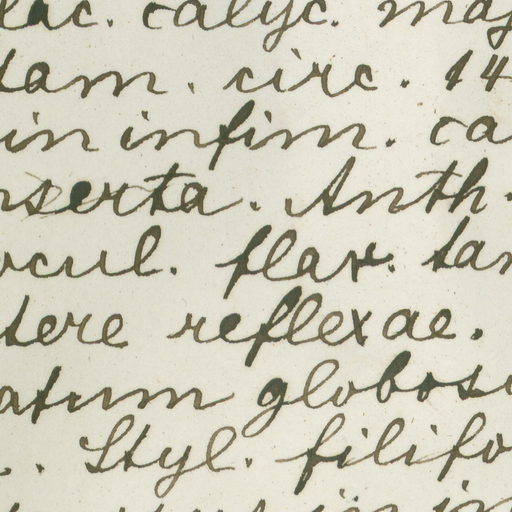 lac. calyc. maj
tam. circ. 14
in infim. ca
nserta. Anth.
ocul. flav. tan
tere reflexae.
atum globoso
. Styl. filifo